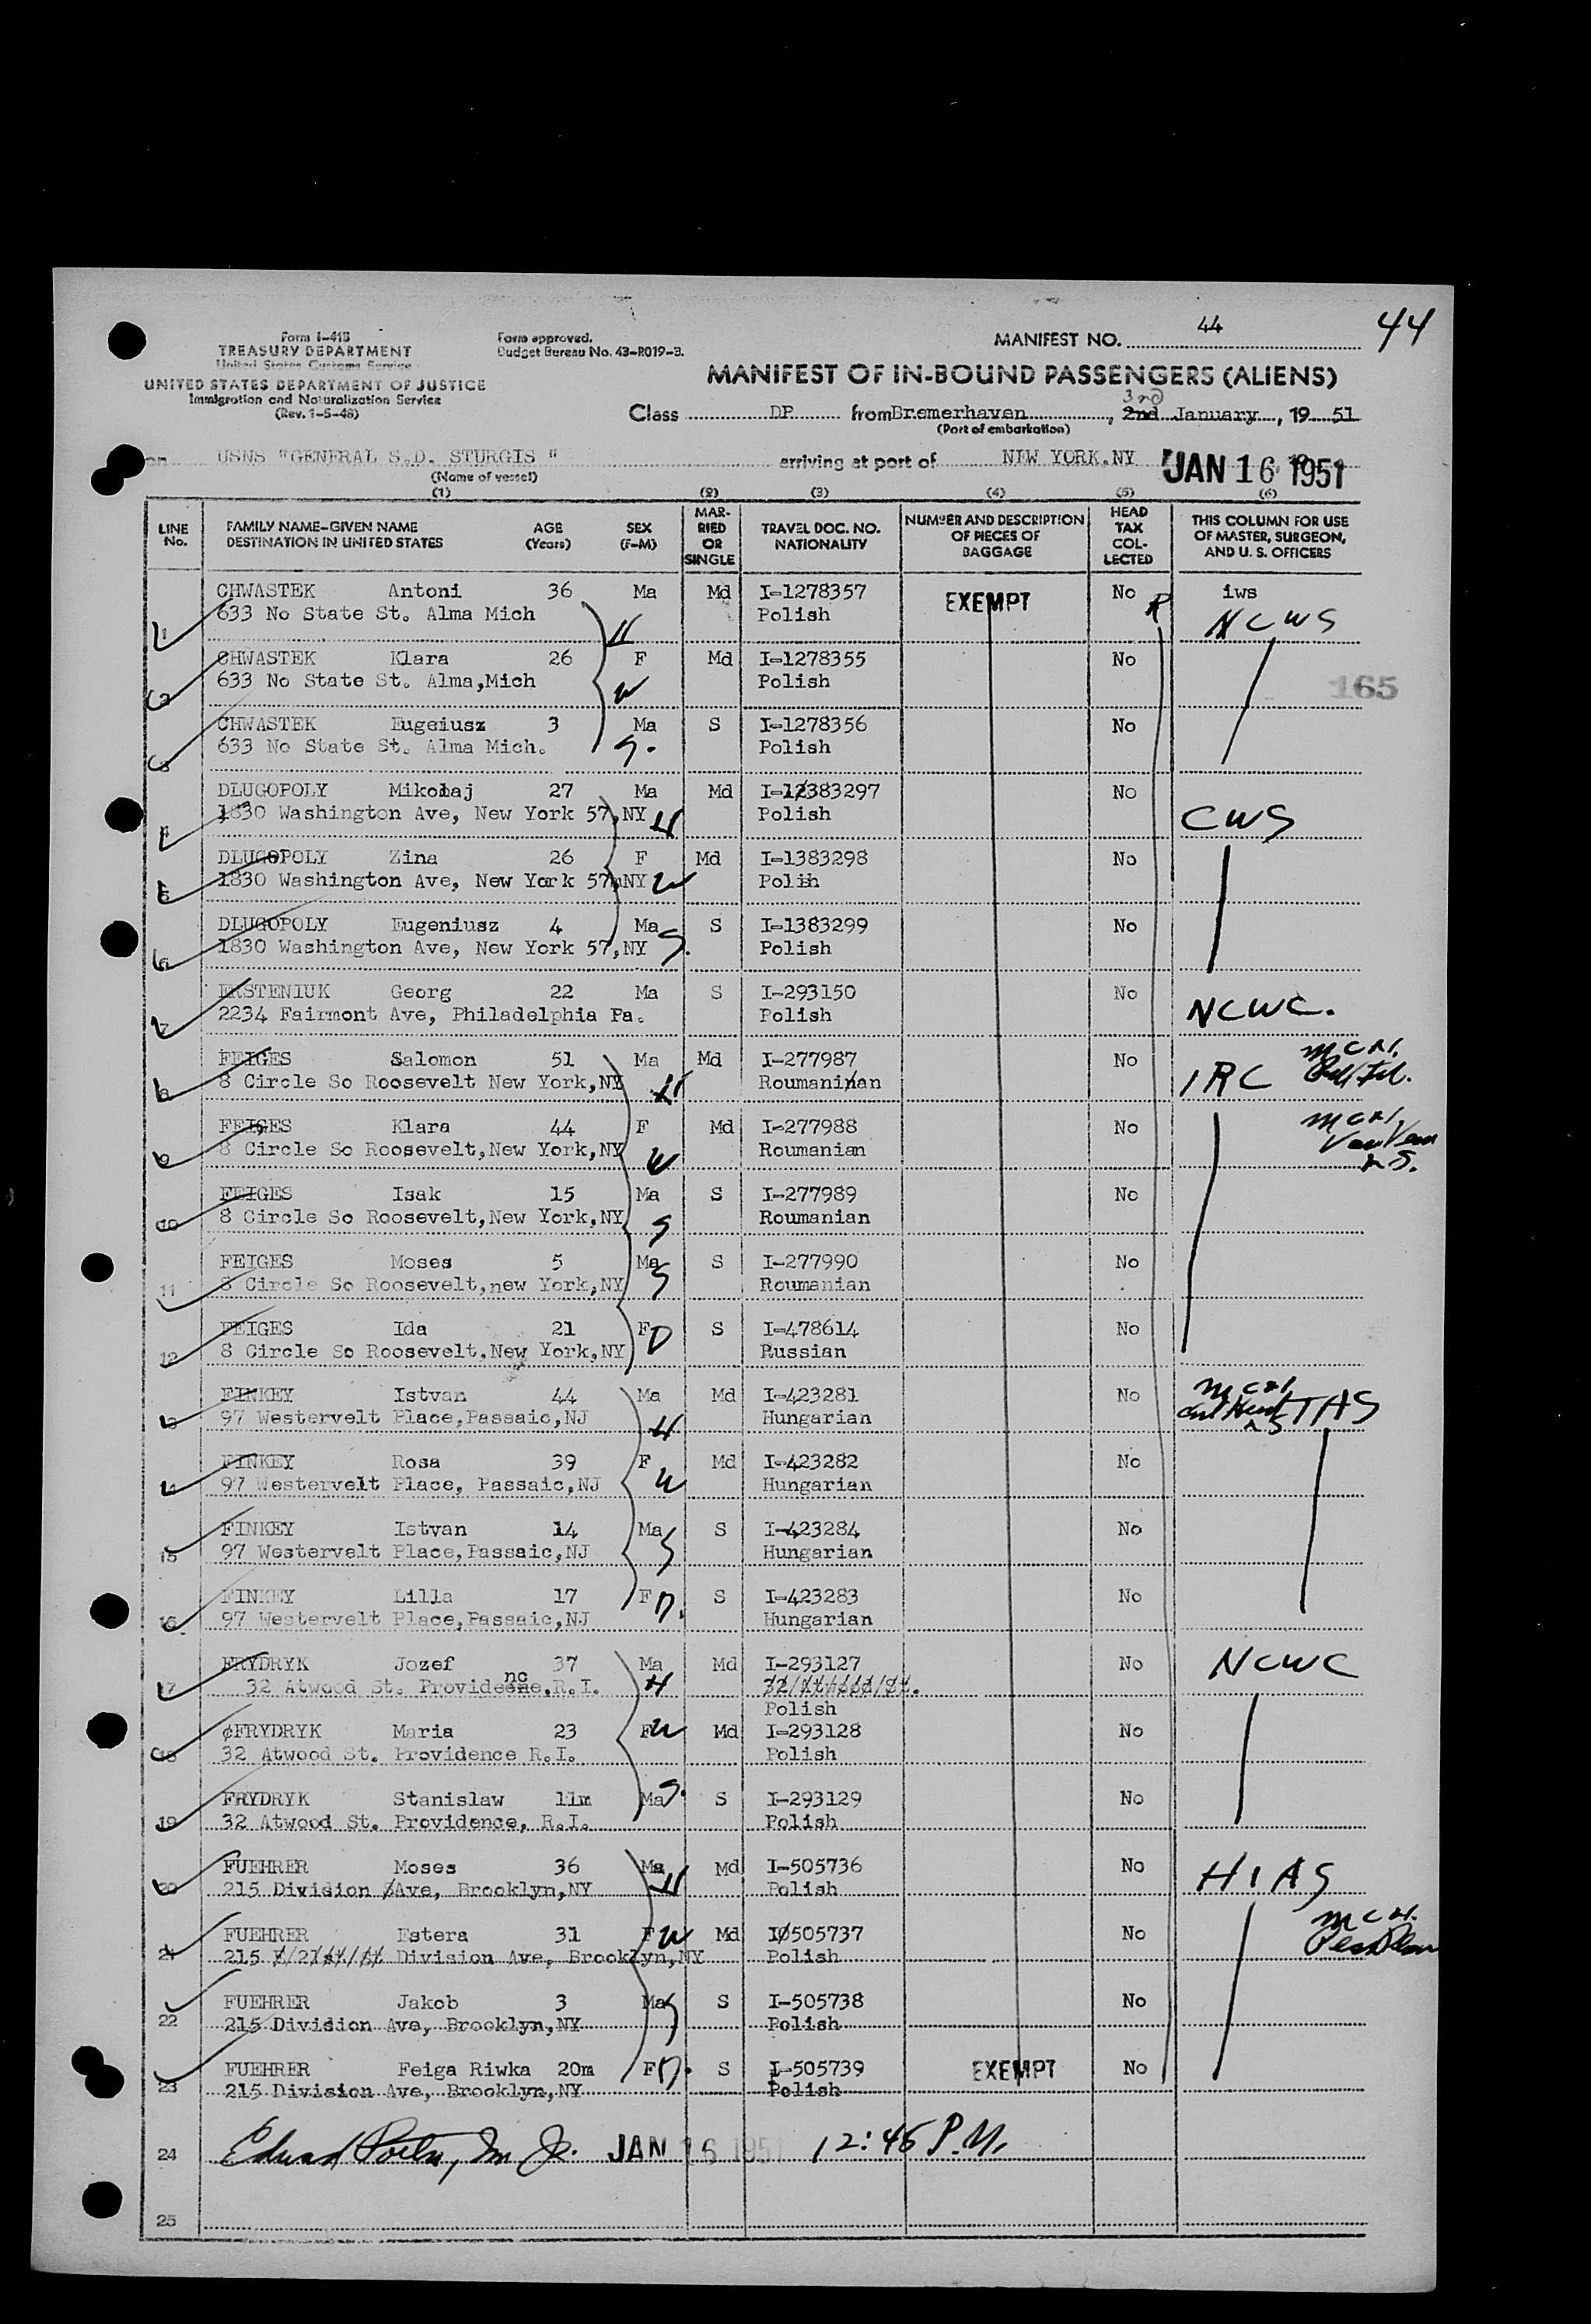 44
Form I-415
TREASURY DEPARTMENT
United States Customs Service
UNITED STATES DEPARTMENT OF JUSTICE
Immigration and Naturalization Service
(Rev. 1-5-48)
Form approved.
Budget Bureau No. 43-R019-3.
MANIFEST NO. 44
MANIFEST OF IN-BOUND PASSENGERS (ALIENS)
3rd
Class DP from Bremerhaven, 2nd January, 19 51
(Port of embarkation)
on USNS "GENERAL S.D. STURGIS " arriving at port of NEW YORK.NY JAN 16 1951
(Name of vessel)
(1) (2) (3) (4) (5) (6)
LINE No. FAMILY NAME-GIVEN NAME DESTINATION IN UNITED STATES AGE (Years) SEX (F-M) MARRIED OR SINGLE TRAVEL DOC. NO. NATIONALITY NUMBER AND DESCRIPTION OF PIECES OF BAGGAGE HEAD TAX COLLECTED THIS COLUMN FOR USE OF MASTER, SURGEON, AND U. S. OFFICERS
CHWASTEK Antoni 36 Ma Md I-1278357 EXEMPT No R iws
1 633 No State St. Alma Mich H Polish NCWS
CHWASTEK Klara 26 F Md I-1278355 No
2 633 No State St. Alma,Mich W Polish 165
CHWASTEK Eugeiusz 3 Ma S I-1278356 No
3 633 No State St. Alma Mich. S. Polish
DLUGOPOLY Mikolaj 27 Ma Md I-12383297 No
4 1830 Washington Ave, New York 57,NY H Polish CWS
DLUGOPOLY Zina 26 F Md I-1383298 No
5 1830 Washington Ave, New York 57,NY W Polih
DLUGOPOLY Eugeniusz 4 Ma S I-1383299 No
6 1830 Washington Ave, New York 57,NY S. Polish
ERSTENIUK Georg 22 Ma S I-293150 No
7 2234 Fairmont Ave, Philadelphia Pa. Polish NCWC.
FEIGES Salomon 51 Ma Md I-277987 No
8 8 Circle So Roosevelt New York,NY H Roumaninan IRC
FEIGES Klara 44 F Md I-277988 No
9 8 Circle So Roosevelt,New York,NY W Roumanian
FEIGES Isak 15 Ma S I-277989 No
10 8 Circle So Roosevelt,New York,NY S Roumanian
FEIGES Moses 5 Ma S I-277990 No
11 8 Circle So Roosevelt,new York,NY S Roumanian
FEIGES Ida 21 F D S I-478614 No
12 8 Circle So Roosevelt,New York,NY Russian
FINKEY Istvan 44 Ma Md I-423281 No
13 97 Westervelt Place,Passaic,NJ H Hungarian TAS
FINKEY Rosa 39 F Md I-423282 No
14 97 Westervelt Place, Passaic,NJ W Hungarian
FINKEY Istvan 14 Ma S I-423284 No
15 97 Westervelt Place,Passaic,NJ S Hungarian
FINKEY Lilla 17 F D. S I-423283 No
16 97 Westervelt Place,Passaic,NJ Hungarian
FRYDRYK Jozef 37 Ma Md I-293127 No NCWC
nc
17 32 Atwood St. Provideene,R.I. H
Polish
FRYDRYK Maria 23 F W Md I-293128 No
18 32 Atwood St. Providence R.I. Polish
FRYDRYK Stanislaw 11m Ma S. S I-293129 No
19 32 Atwood St. Providence, R.I. Polish
FUEHRER Moses 36 Ma Md I-505736 No HIAS
20 215 Division Ave, Brooklyn,NY H Polish
FUEHRER Estera 31 F W Md I505737 No
21 215 Division Ave, Brooklyn,NY Polish
FUEHRER Jakob 3 Ma S S I-505738 No
22 215 Division Ave, Brooklyn,NY Polish
FUEHRER Feiga Riwka 20m F D. S I-505739 EXEMPT No
23 215 Division Ave, Brooklyn,NY Polish
24 JAN 16 1951 12:45 P.M.
25